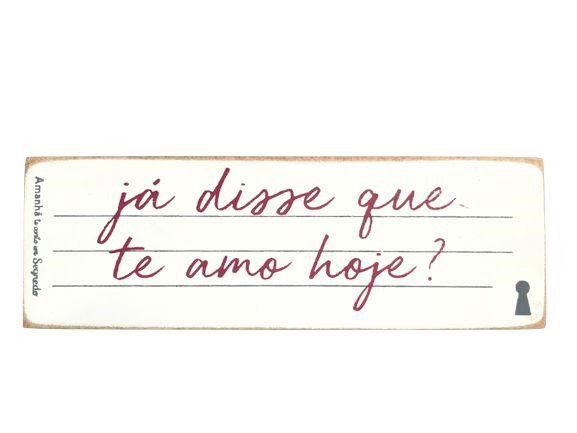 já disse que
te amo hoje?
Amanhã te conto um Segredo